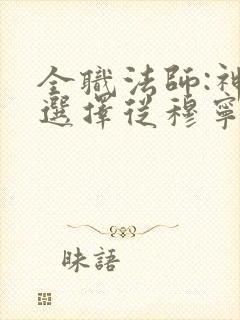 全職法師:神
選擇從穆寧
昧語